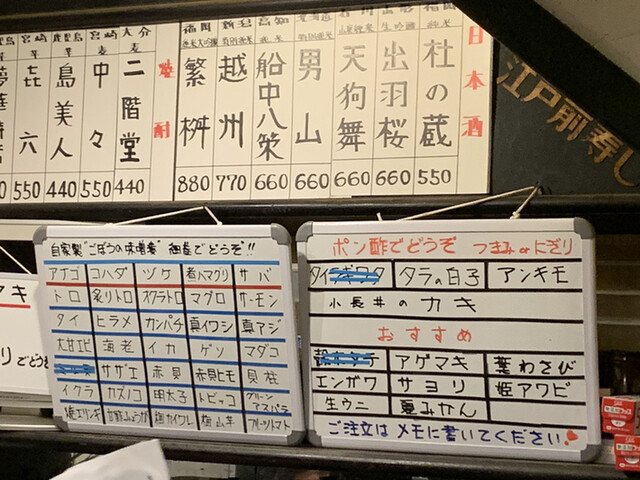 日本酒
杜の蔵
550
出羽桜
660
天狗舞
660
男山
660
船中八策
660
越州
770
繁桝
880
焼酎
二階堂
440
中々
550
島美人
440
㐂六
550
江戸前寿し
自家製"ごぼうの味噌煮" 細巻でどうぞ!!
アナゴ コハダ ヅケ 煮ハマグリ サバ
トロ 炙りトロ スクラトロ マグロ サーモン
タイ ヒラメ カンパチ 真イワシ 真アジ
大甘エビ 海老 イカ ゲソ マダコ
サザエ 赤貝 赤貝ヒモ 貝柱
イクラ カズノコ 明太子 トビッコ グリーンアスパラ
ポン酢でどうぞ つまみ or にぎり
タラの白子 アンキモ
小長井のカキ
おすすめ
アゲマキ 葉わさび
エンガワ サヨリ 姫アワビ
生ウニ 夏みかん
ご注文はメモに書いてください